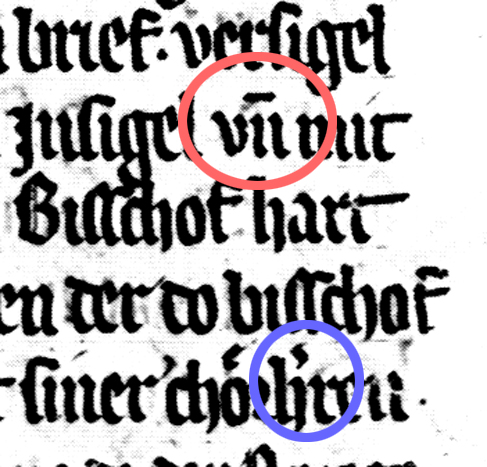 brief. verſigel
Jnſigel vn̄ mit
Biſſchof hart
en der do biſſchof
ſiner chórh'ren.